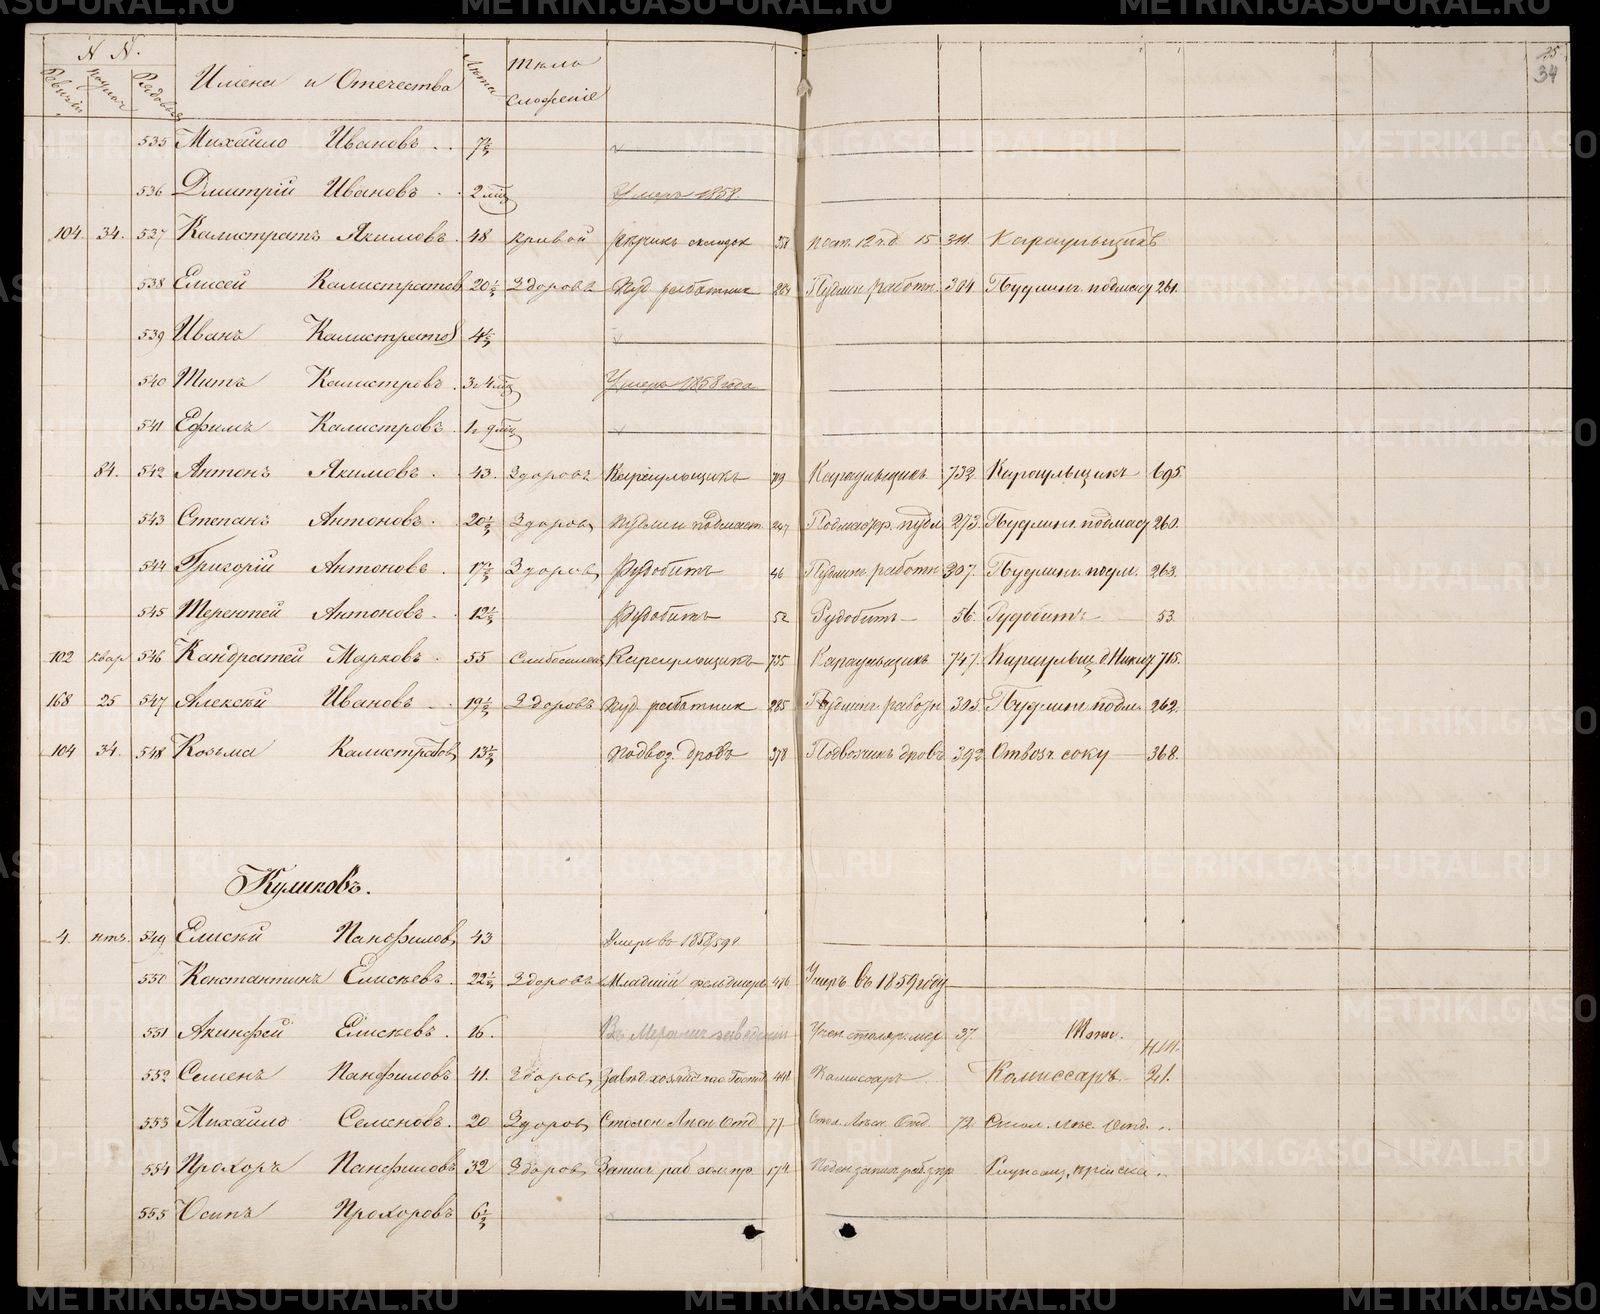 25
34
N N.
Имена и Отчества
Лѣта
Тѣло
сложеніе
535 Михайло Ивановъ. 7½
536 Дмитрій Ивановъ. 2 мѣс Умеръ 1858.
104. 34. 537 Калистратъ Якимовъ. 48 кривой 15 311. Караульщикъ
538 Елисей Калистратов 20½ Здоровъ Пуд работник 264 Пудлин. работн. 304. Пудлинг. подмас 261.
539 Иванъ Калистратов 4½
540 Титъ Калистровъ. 3 г 4 мѣс Умеръ 1858 года
541 Ефимъ Калистровъ. 1 г 9 мѣс
84. 542 Антонъ Якимовъ. 43. Здоровъ Караульщикъ 719 Караульщикъ 732. Караульщикъ 695
543 Степанъ Антоновъ. 20½ Здоров Пудлин подмаст. 247 273. Пудлинг. подмас 260.
544 Григорій Антоновъ. 17½ Здоров Рудобитъ 46 Пудлинг. работн 307. Пудлинг. подм. 263.
545 Терентей Антоновъ. 12½ Рудобитъ 52 Рудобитъ 56. Рудобитъ 53.
102 квар 546 Кандратей Марковъ. 55 Слабосилен Караульщикъ 735 Караульщикъ 747. Караульщ. 715.
168 25 547 Алексѣй Ивановъ 19½ Здоровъ Пуд работник 285 Пудлинг. работн 305. Пудлинг подм. 262.
104 34. 548 Козьма Калистратов 13½ Подвоз. дровъ 378 Подвозчикъ дровъ 392. Отвозч. соку 368.
Куликовъ.
4. 549 Елисѣй Панфилов 43 Умеръ въ 1858
550 Константинъ Елисѣевъ. 22½ Здоровъ Младшій фельдшеръ 476 Умеръ въ 1859 году
551 Акинфей Елисѣевъ. 16. Учен. столяр. 37. Тоже.
552 Семенъ Панфиловъ 41. Здоров 441 Комиссаръ Комиссаръ 21.
553 Михайло Семеновъ. 20 Здоров Столон Лѣсн Отд. 77 Стол. Лѣсн. Отд. 72 Стол. Лѣс. Отд.
554 Прохоръ Панфиловъ 32 Здоров 174 пріиска
555 Осипъ Прохоровъ 6½
METRIKI.GASO-URAL.RU